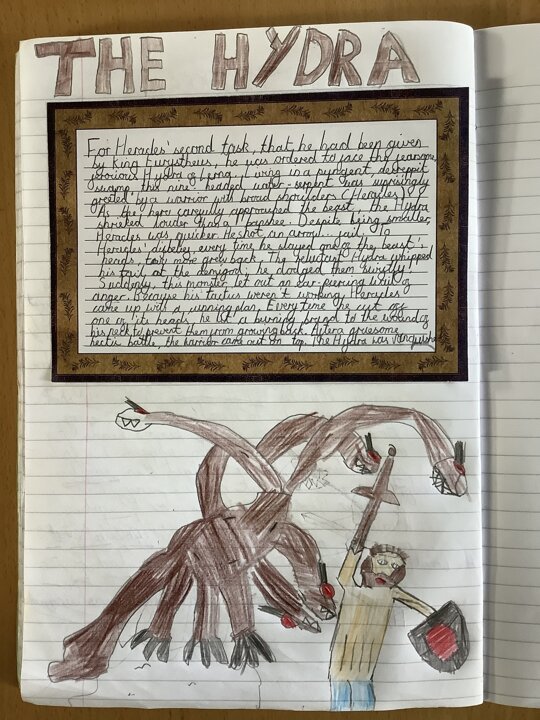 THE HYDRA
For Heracles' second task, that he had been given
by King Eurystheus, he was ordered to face the fearsome,
ferocious Hydra of Lerna. Living in a pungent, decreppit
swamp, this nine-headed water-serpent was suprisingly
greeted by a warrior with broad shoulders (Heracles).
As the hero carefully approached the beast, the Hydra
shrieked louder than a banshee. Despite being smaller,
Heracles was quicker. He shot an arrow... fail. To
Heracles' disbelief, every time he slayed one of the beast's
heads, two more grew back. The reluctant Hydra whipped
his tail at the demigod; he dodged them swiftly.
Suddenly, this monster let out an ear-piercing wail of
anger. Because his tactics weren't working, Heracles'
came up was a cunning plan. Every time he cut off
one of its heads he let a burning brand to the wound of
his neck to prevent them from growing back. After a gruesome
hectic battle, the warrior came out on top. The Hydra was vanquished